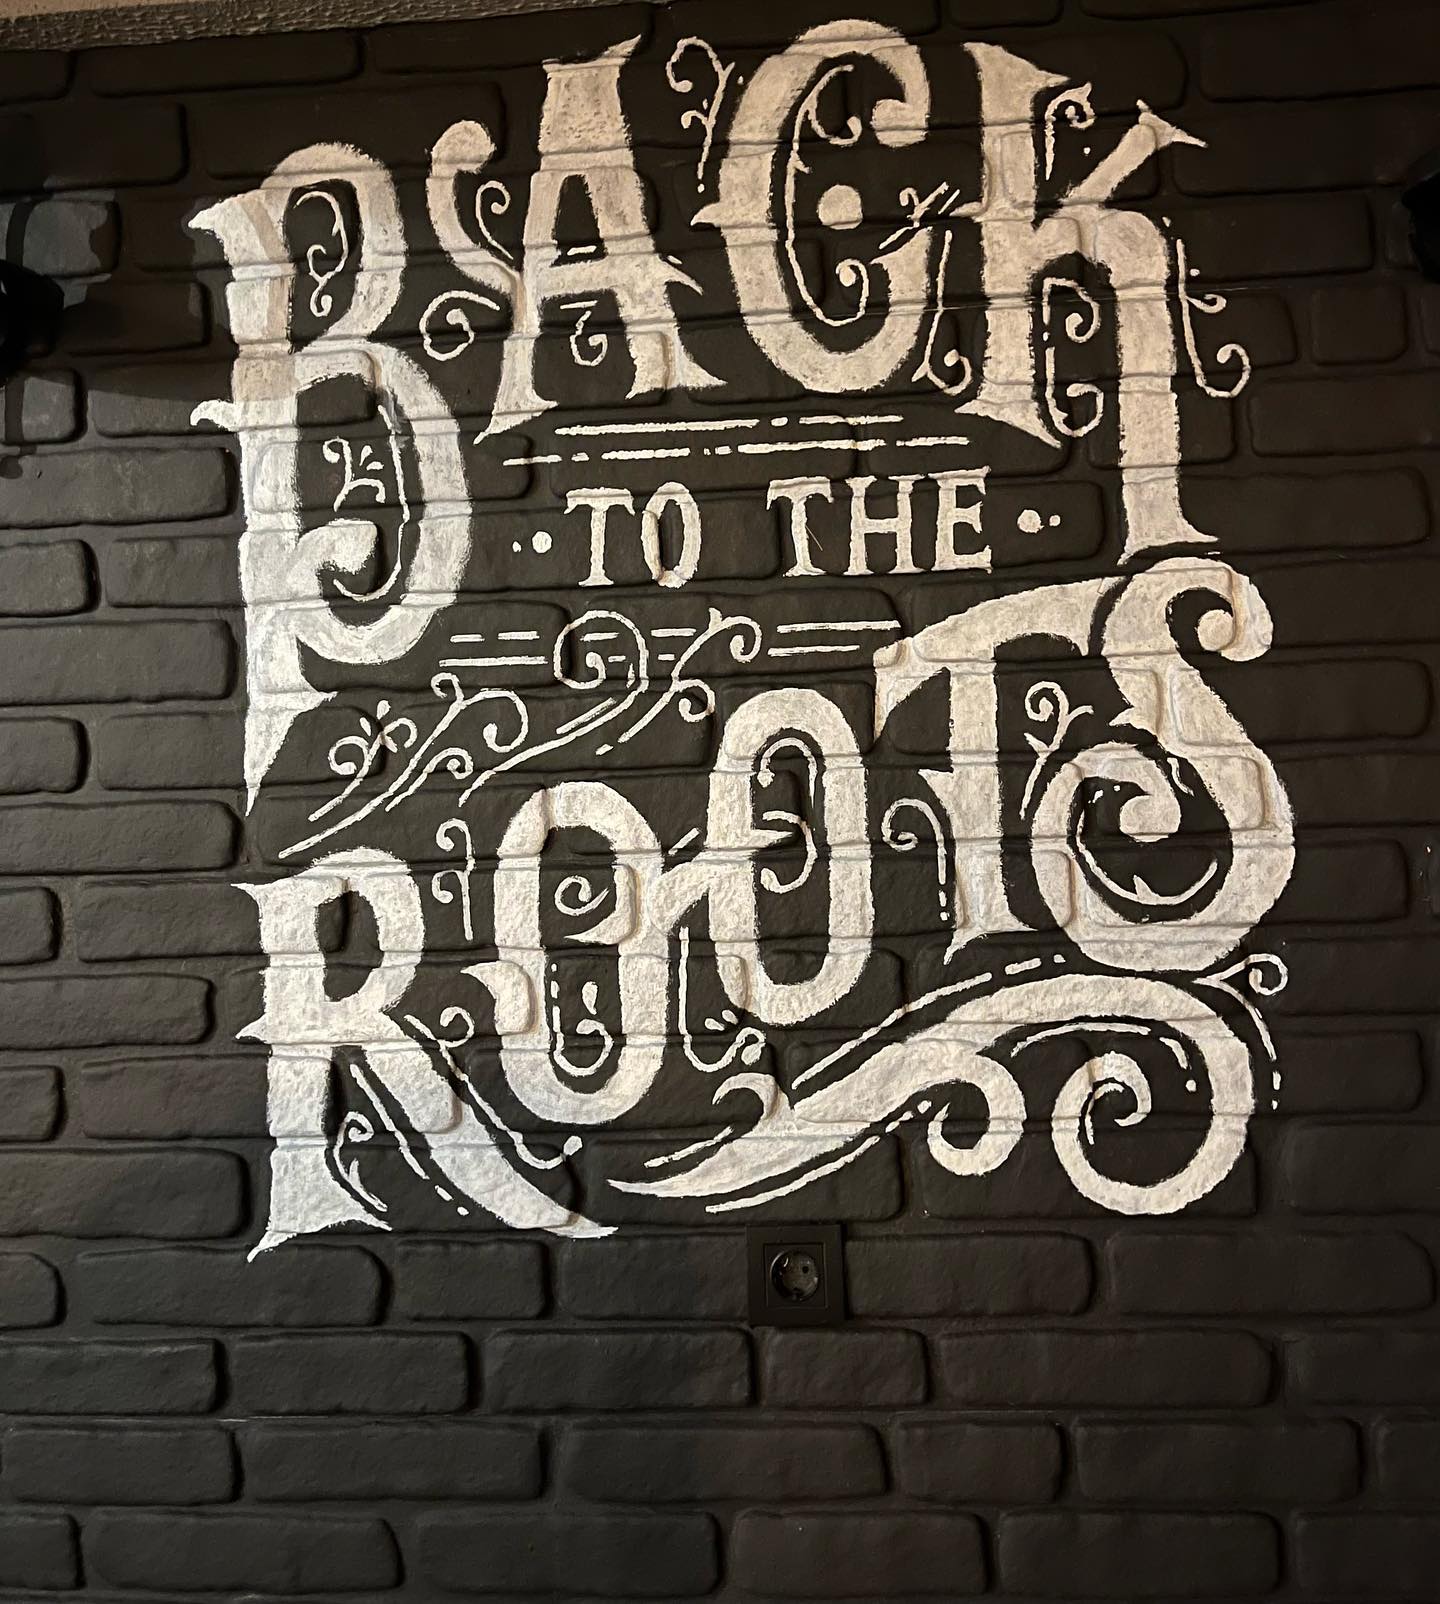 BACK
TO THE
ROOTS